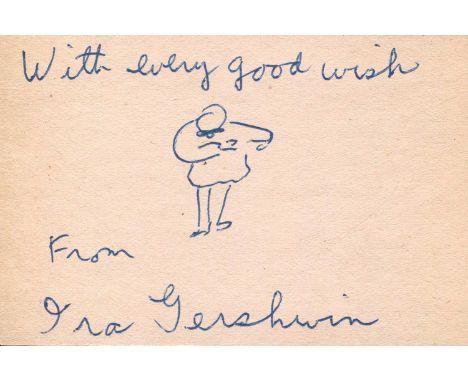 With every good wish
From
Ira Gershwin